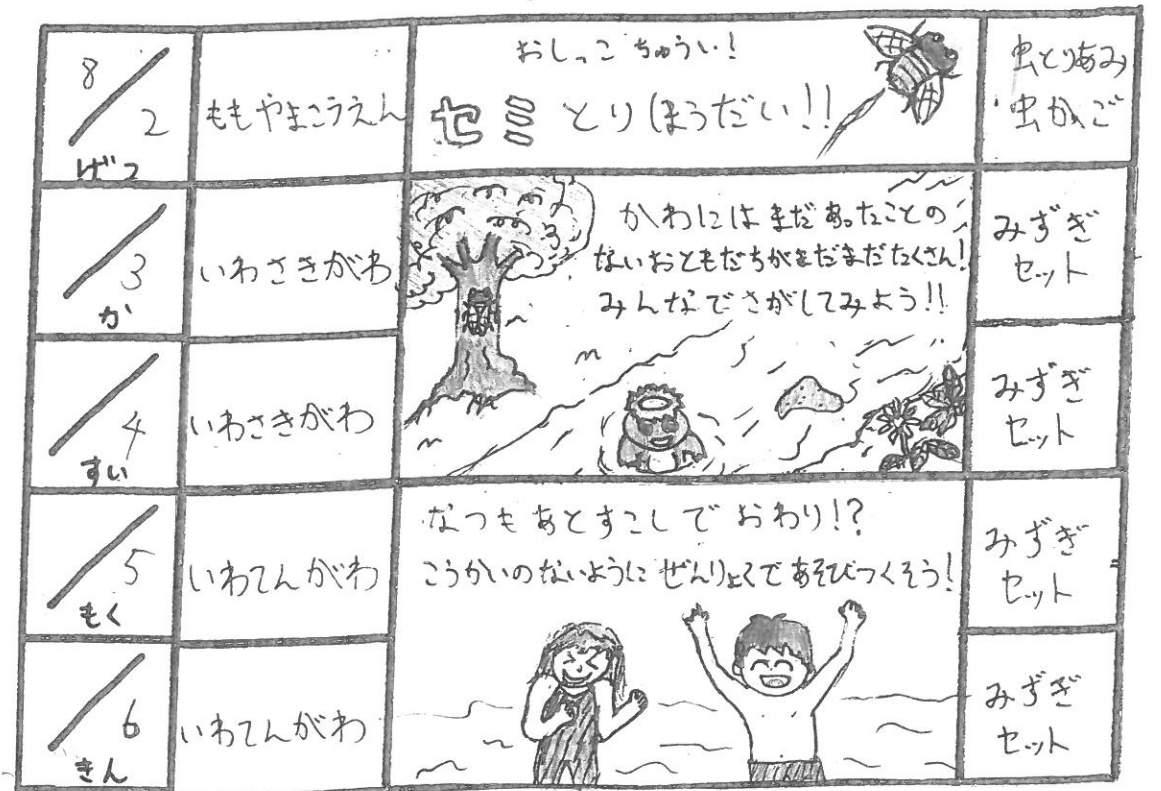 8/2
げつ
ももやまこうえん
おしっこ ちゅうい!
セミ とりほうだい!!
虫とりあみ
虫かご
3
か
いわさきがわ
かわにはまだあったことの
ないおともだちがまだまだたくさん!
みんなでさがしてみよう!!
みずぎ
セット
4
すい
いわさきがわ
みずぎ
セット
5
もく
いわてんがわ
なつもあとすこしでおわり!?
こうかいのないように ぜんりょくであそびつくそう!
みずぎ
セット
6
きん
いわてんがわ
みずぎ
セット